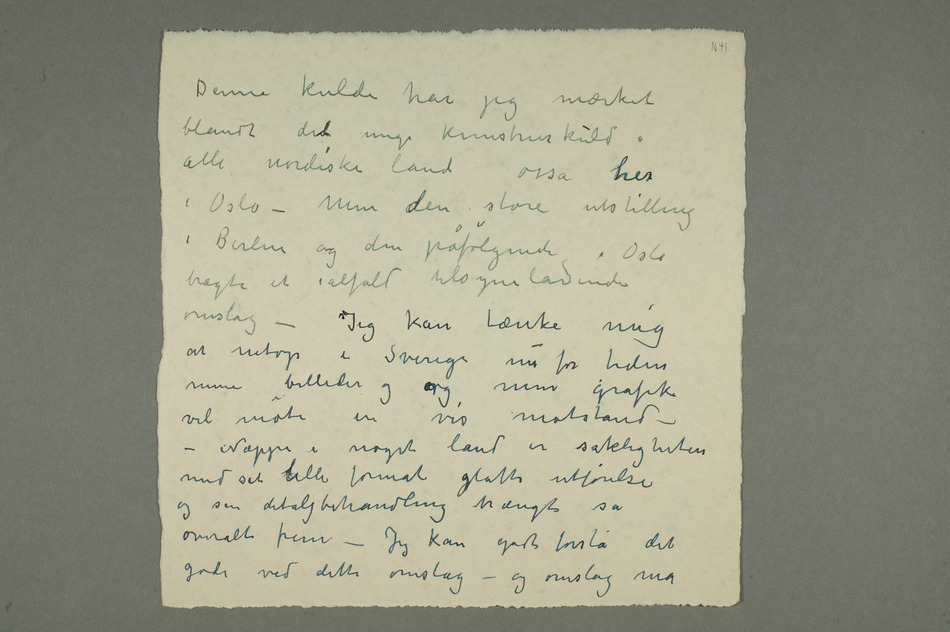 N 41
Denne kulde har jeg mærket
blandt det unge kunstnerkuld i
alle nordiske land ossa her
i Oslo – Men den store utstilling
i Berlin og den påfølgende i Oslo
bragte et ialfald tilsyneladende
omslag – Jeg kan tænke mig
at netop i Sverige nu for tiden
mine billeder og og min grafik
vil møte en vis motstand –
– Næppe i noget land er sakligheten
med sit lille format glatte utførelse
og sin detaljbehandling trængt så
overalt frem – Jeg kan godt forstå det
gode ved dette omslag – og omslag må